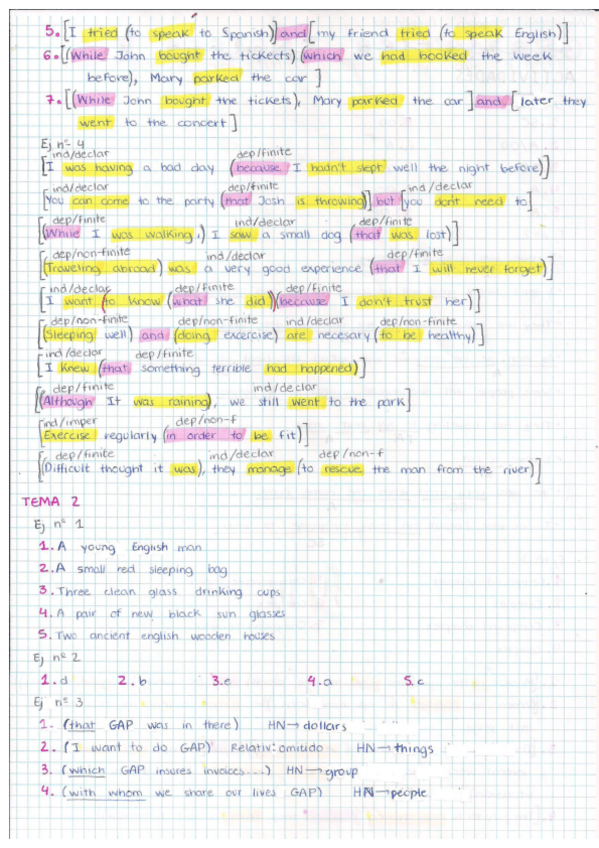 5. [I tried (to speak to Spanish)] and [my friend tried (to speak English)]
6. [(While John bought the tickects) (which we had booked the week
before), Mary parked the car]
7. [(While John bought the tickets), Mary parked the car] and [later they
went to the concert]
Ej nº 4
ind/declar dep/finite
[I was having a bad day (because I hadn't slept well the night before)]
ind/declar dep/finite ind/declar
[You can come to the party (that Josh is throwing)] but [you don't need to]
dep/finite ind/declar dep/finite
[(While I was walking,) I saw a small dog (that was lost)]
dep/non-finite ind/declar dep/finite
[(Traveling abroad) was a very good experience (that I will never forget)]
ind/declar dep/finite dep/finite
[I want (to know (what she did)) (because I don't trust her)]
dep/non-finite dep/non-finite ind/declar dep/non-finite
[(Sleeping well) and (doing exercise) are necesary (to be healthy)]
ind/declar dep/finite
[I knew (that something terrible had happened)]
dep/finite ind/declar
[(Although It was raining), we still went to the park]
ind/imper dep/non-f
[Exercise regularly (in order to be fit)]
dep/finite ind/declar dep/non-f
[(Difficult thought it was), they manage (to rescue the man from the river)]
TEMA 2
Ej nº 1
1. A young English man
2. A small red sleeping bag
3. Three clean glass drinking cups
4. A pair of new black sun glasses
5. Two ancient english wooden houses
Ej nº 2
1. d 2. b 3. e 4. a 5. c
Ej nº 3
1. (that GAP was in there) HN → dollars
2. (I want to do GAP) Relativ: omitido HN → things
3. (which GAP insures invoices...) HN → group
4. (with whom we share our lives GAP) HN → people